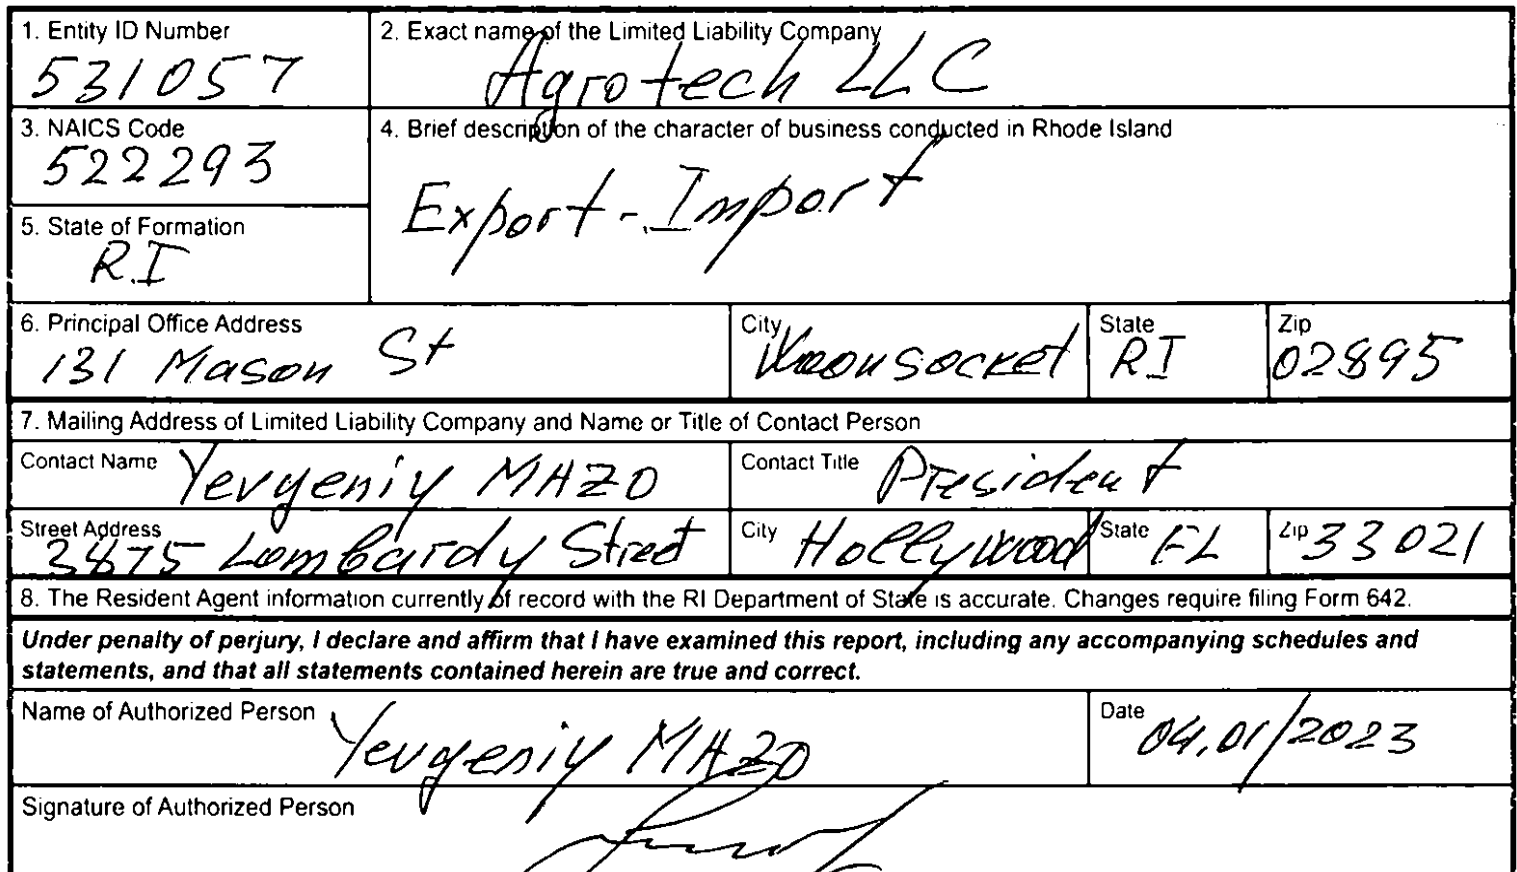 1. Entity ID Number
531057
2. Exact name of the Limited Liability Company
Agrotech LLC
3. NAICS Code
522293
4. Brief description of the character of business conducted in Rhode Island
Export-Import
5. State of Formation
R.I
6. Principal Office Address
131 Mason St
City
Woonsocket
State
RI
Zip
02895
7. Mailing Address of Limited Liability Company and Name or Title of Contact Person
Contact Name Yevgeniy MAZO
Contact Title President
Street Address
3475 Lombardy Street
City Hollywood
State FL
Zip 33021
8. The Resident Agent information currently of record with the RI Department of State is accurate. Changes require filing Form 642.
Under penalty of perjury, I declare and affirm that I have examined this report, including any accompanying schedules and
statements, and that all statements contained herein are true and correct.
Name of Authorized Person Yevgeniy MAZO
Date 04.01/2023
Signature of Authorized Person